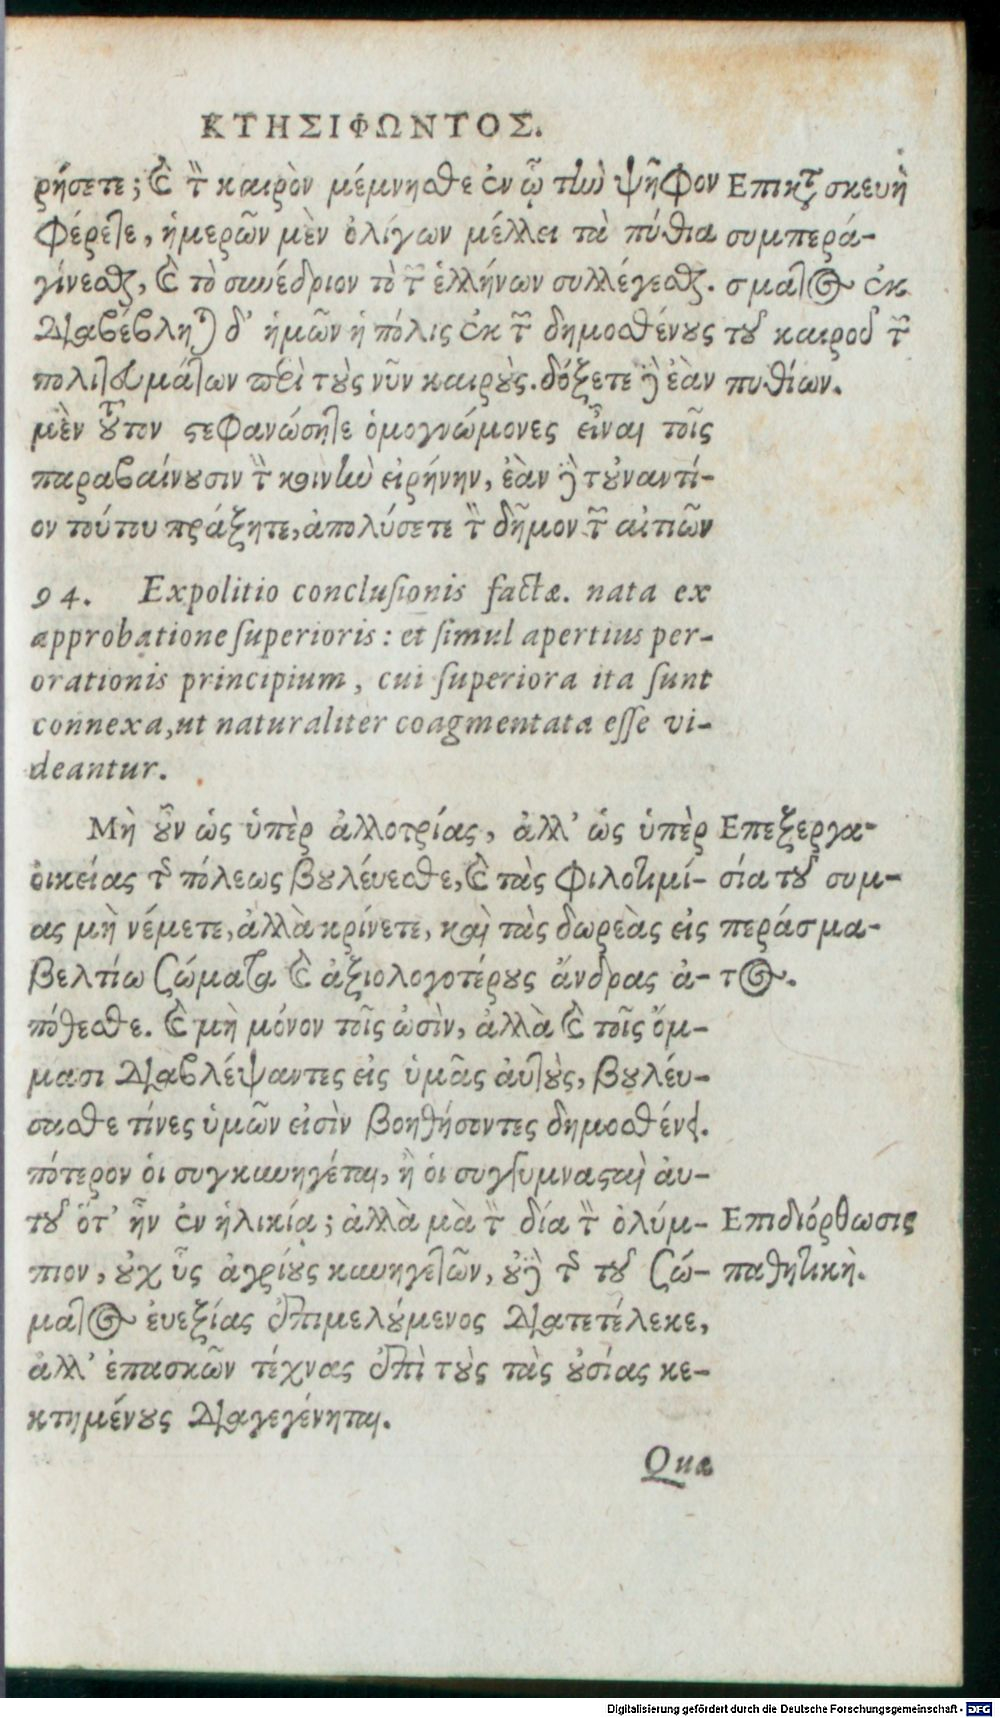 ΚΤΗΣΙΦΩΝΤΟΣ.
ρήσετε; καὶ τὸν καιρὸν μέμνησθε ἐν ᾧ τὴν ψῆφον
φέρετε, ἡμερῶν μὲν ὀλίγων μέλλει τὰ πύθια
γίνεσθαι, καὶ τὸ συνέδριον τὸ τῶν ἑλλήνων συλλέγεσθαι.
Διαβέβληται δ' ἡμῶν ἡ πόλις ἐκ τῶν δημοσθένους
πολιτευμάτων περὶ τοὺς νῦν καιρούς. δόξετε δὲ ἐὰν
μὲν τοῦτον στεφανώσητε ὁμογνώμονες εἶναι τοῖς
παραβαίνουσιν τὴν κοινὴν εἰρήνην, ἐὰν δὲ τοὐναντί-
ον τούτου πράξητε, ἀπολύσετε τὸν δῆμον τῶν αἰτιῶν
Επικατασκευὴ
συμπερά-
σματος ἐκ
τοῦ καιροῦ τῶν
πυθίων.
94. Expolitio conclusionis factæ. nata ex
approbatione superioris: et simul apertius per-
orationis principium, cui superiora ita sunt
connexa, ut naturaliter coagmentata esse vi-
deantur.
Μὴ οὖν ὡς ὑπὲρ ἀλλοτρίας, ἀλλ' ὡς ὑπὲρ
οἰκείας τῆς πόλεως βουλέυεσθε, καὶ τὰς φιλοτιμί-
ας μὴ νέμετε, ἀλλὰ κρίνετε, καὶ τὰς δωρεὰς εἰς
βελτίω σώματα καὶ ἀξιολογοτέρους ἄνδρας ἀ-
πόθεσθε. καὶ μὴ μόνον τοῖς ὠσὶν, ἀλλὰ καὶ τοῖς ὄμ-
μασι διαβλέψαντες εἰς ὑμᾶς ἀυτοὺς, βουλέυ-
σασθε τίνες ὑμῶν εἰσὶν βοηθήσοντες δημοσθένει.
πότερον ὁι συγκυνηγέται, ἢ ὁι συγγυμνασταὶ ἀυ-
τοῦ ὅτ' ἦν ἐν ἡλικία; ἀλλὰ μὰ τὸν δία τὸν ὀλύμ-
πιον, οὐχ ὗς ἀγρίους κυνηγετῶν, οὐδὲ τῆς τοῦ σώ-
ματος ἐυεξίας ἐπιμελούμενος διατετέλεκε,
ἀλλ' ἐπασκῶν τέχνας ἐπὶ τοὺς τὰς οὐσίας κε-
κτημένους διαγεγένηται.
Επεξεργα-
σία τοῦ συμ-
περάσμα-
τος.
Επιδιόρθωσις
παθητικὴ.
Quæ
Digitalisierung gefördert durch die Deutsche Forschungsgemeinschaft - DFG